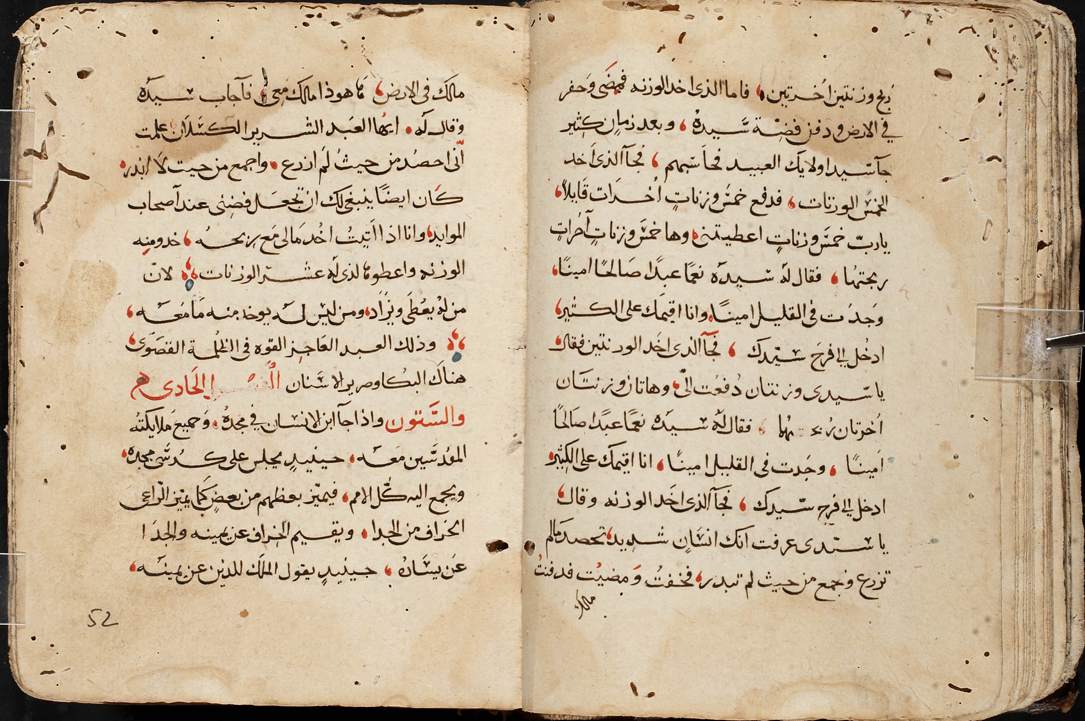 ربح وزنتين اخرتين، فاما الذى اخد الوزنه فمضى وحفر
في الارض ودفن فضة سيده، وبعد زمان كثير
جآ سيد اولايك العبيد فحاسبهم، فجآ الذى اخد
الخمس الوزنات، فدفع خمس وزنات أخرات قايلاً،
يارب خمس وزنات اعطيتني، وها خمس وزنات آخرات
ربحتها، فقال له سيده نعمّا عبدًا صالحًا امينًا،
وجدت في القليل امينًا، وانا اقيمك على الكثير،
ادخل الي فرح سيدك، فجآ الذى اخد الوزنتين فقال،
يا سيدى وزنتان دُفعت اليّ، وهاتان وزنتان
اخرتان ربحتهما، فقال له سيده نعمّا عبدًا صالحًا
امينًا، وجدت في القليل امينًا، انا اقيمك على الكثير
ادخل الي فرح سيدك، فجآ الذى اخد الوزنه وقال،
يا سيدى عرفت انك انسان شديد، تحصد مالم
تزرع وتجمع من حيث لم تبدر، فخفتُ ومضيتُ فدفنتُ
مالك
مالك في الارض، فا هوذا مالك معي، فآجاب سيده
وقال له، ايها العبد الشرير الكسلان علمت
أنّي احصد من حيثُ لم ازرع، واجمع من حيت لا ابدر،
كان ايضًا ينبغي لك ان تجعل فضتي عند آصحاب
الموايد، وانا اذا آتيتُ اخد مالي مع ربحه، خدو منه
الوزنه واعطوها للذى له عشر الوزنات، لانّ
من له يُعطَى ويُزاد، ومن ليس له يوخد منه ما معه،
وذلك العبد العاجز القوه في الظلمة القصوَى،
هناك البكا وصرير الاسنان الفصل الحادى
والستّون واذا جآ ابن الانسان في مجده، وجميع ملايكته
المقدسين معه، حينيدٍ يجلس على كرسى مجده،
ويجمع اليه كل الامم، فيميّز بعظهم من بعضٍ كما يميّز الراعى
الخراف من الجدا، ويقيم الخراف عن يمينه والجدا
عن يساره، حينيدٍ يقول الملك للدين عن يمينه،
52